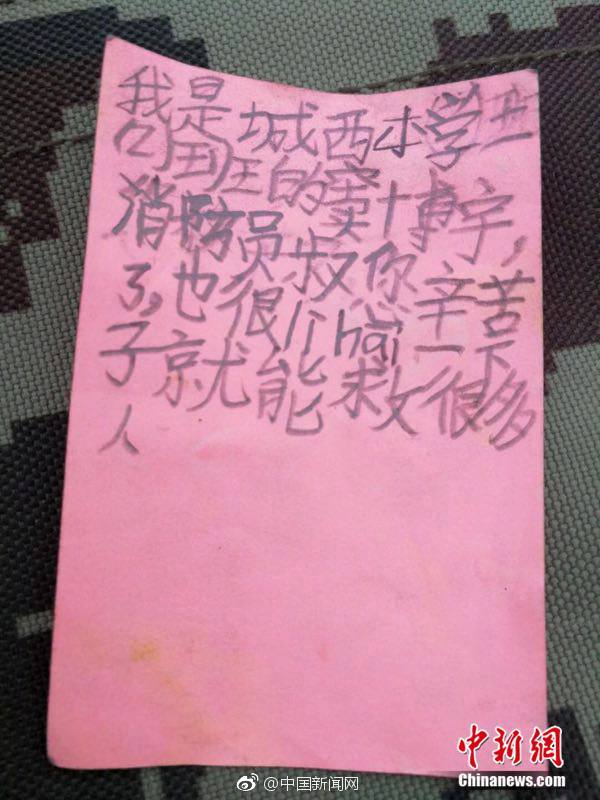 我是城西小学
班的窦博宇,
消防员叔 辛苦
了,也很 hai 一下
子就能救很多
人
@中国新闻网
中新網
Chinanews.com